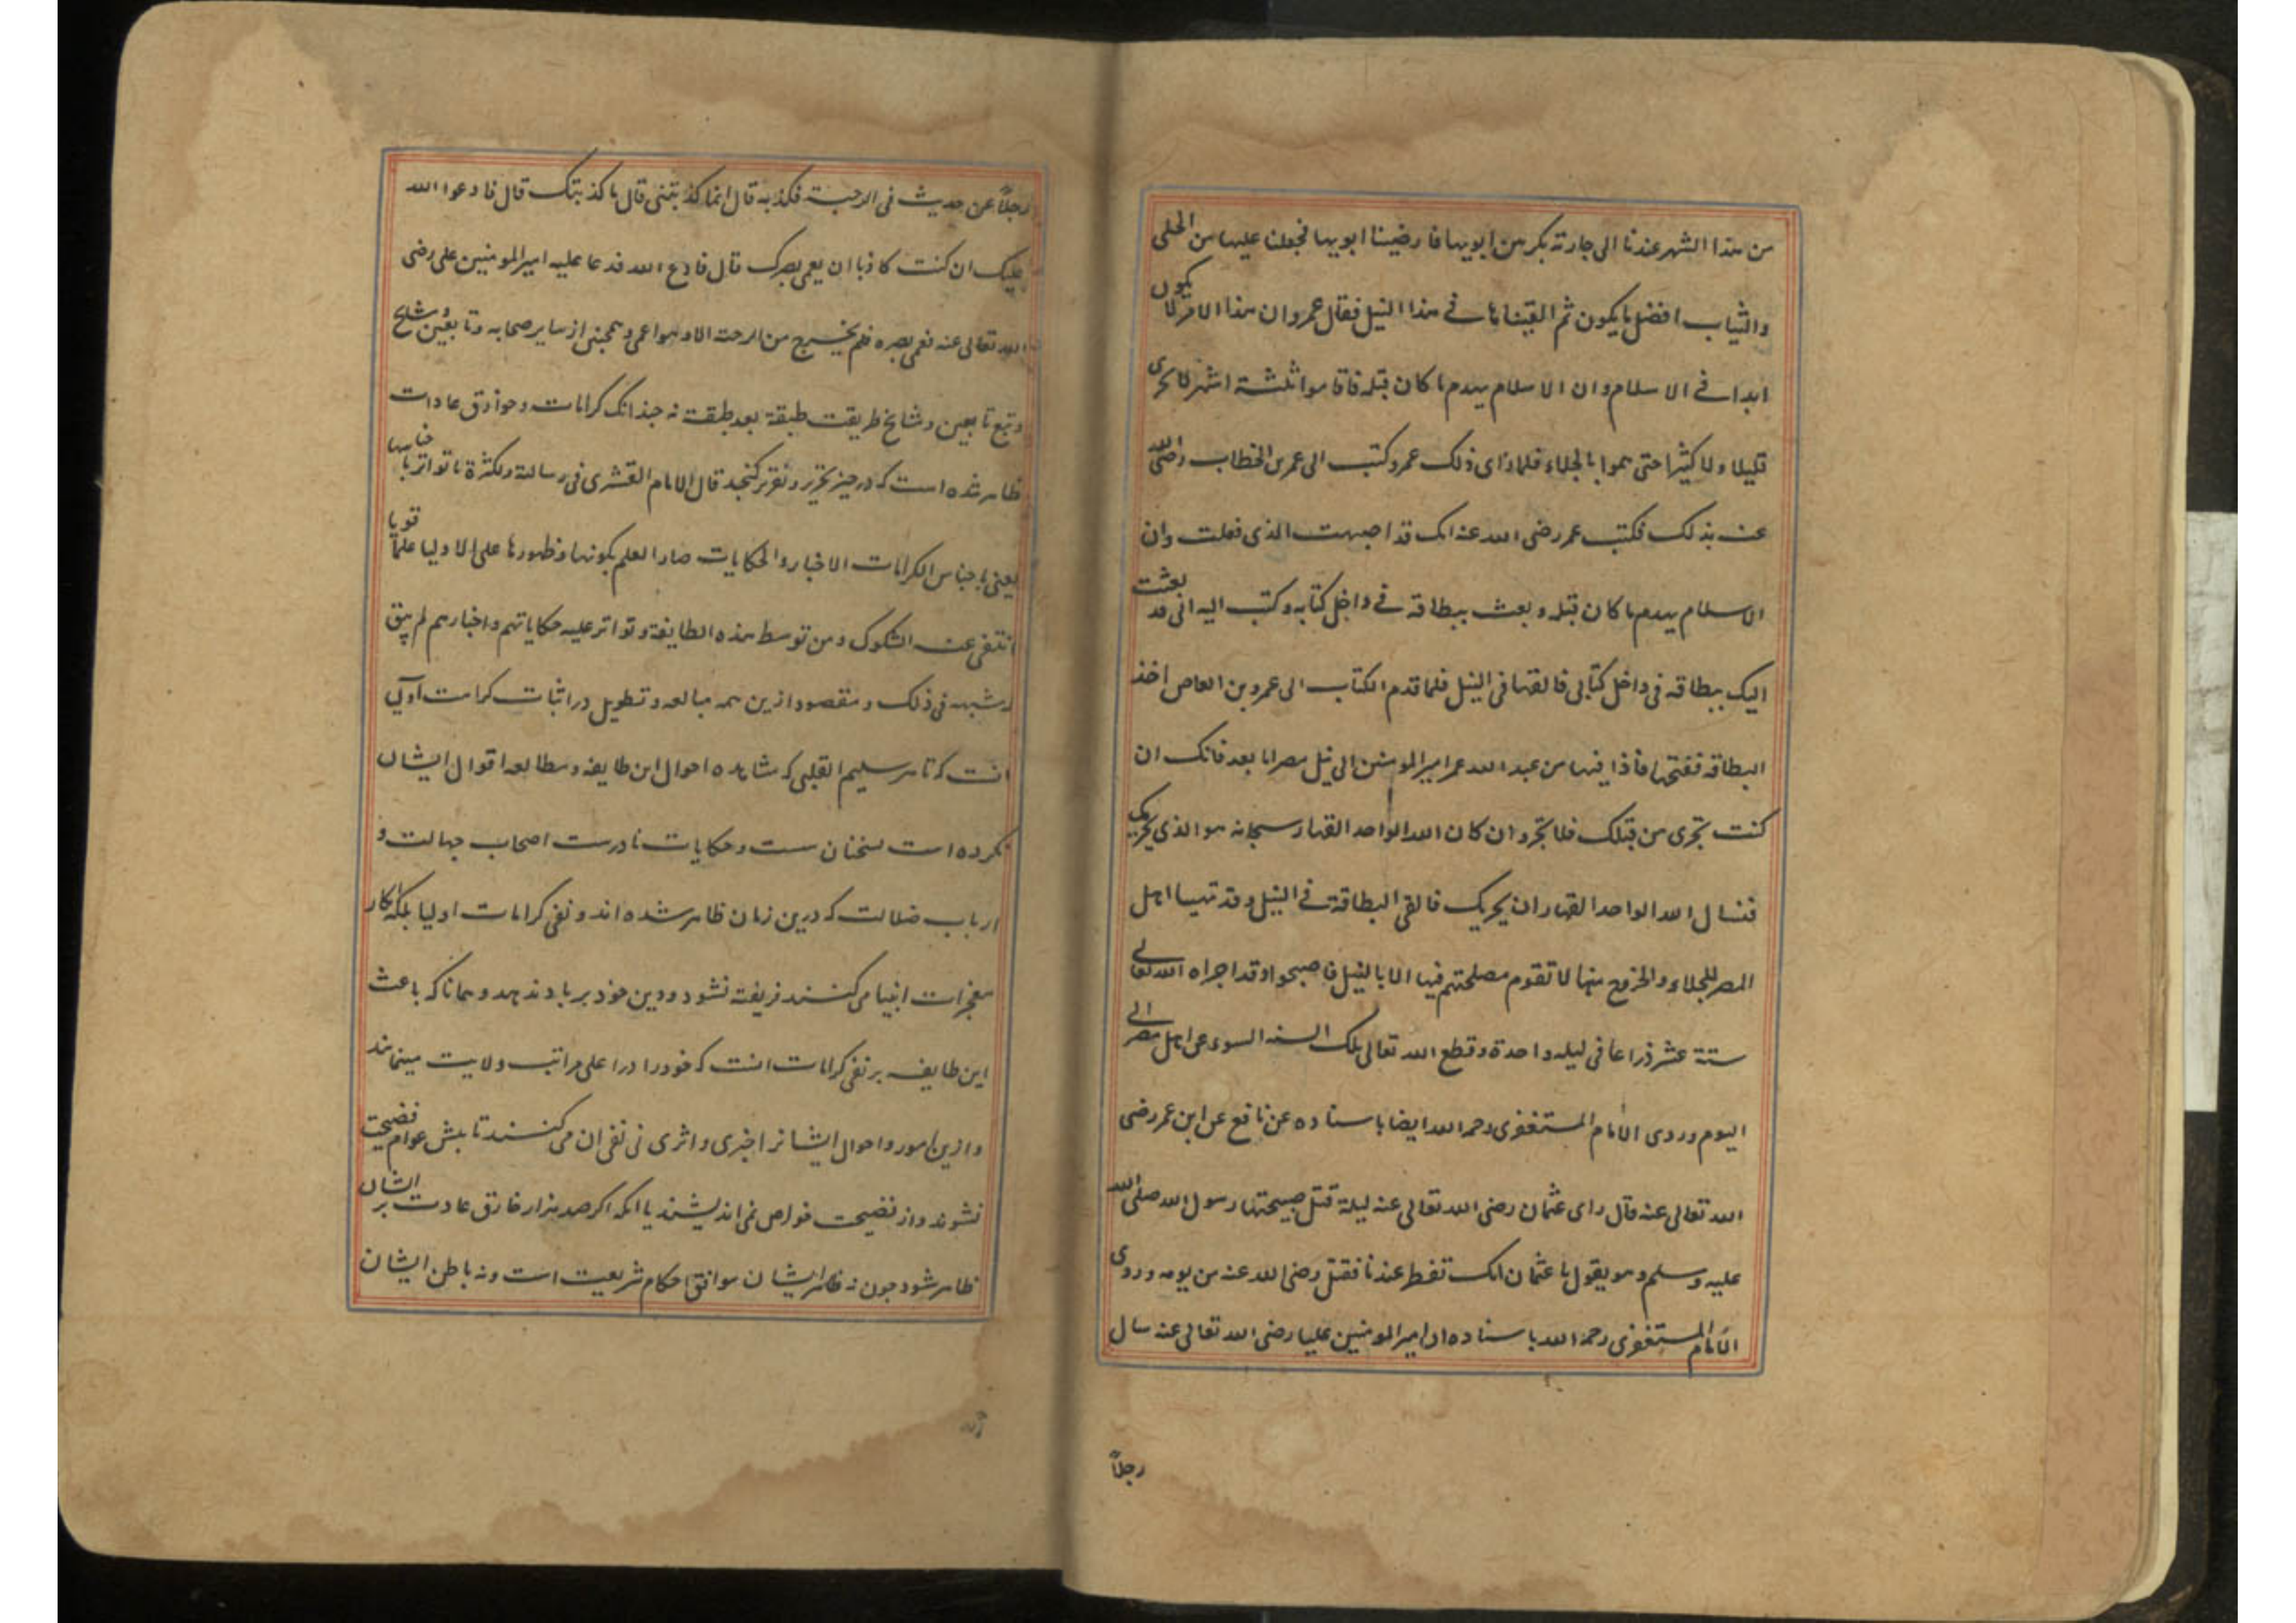 من هذا الشهر عندنا الى جارته بكر من ابويها فارضينا ابويها فجعلنا عليها من الحلى
والثياب افضل ما يكون ثم القيناها فے هذا النيل فقال عمرو ان هذا الامر لا يكون
ابدا فے الاسلام وان الاسلام يهدم ما كان قبله فاقاموا ثلثة اشهر لا تجرى
قليلا ولا كثيرا حتى هموا بالجلاء فلما راى ذلك عمرو كتب الى عمر بن الخطاب رضى الله
عنه بذلك فكتب عمر رضى الله عنه انك قد اصبت الذى فعلت وان
الاسلام يهدم ما كان قبله وبعث ببطاقه فے داخل كتابه وكتب اليه انى قد بعثت
اليك ببطاقه فى داخل كتابى فالقها فى النيل فلما قدم الكتاب الى عمرو بن العاص اخذ
البطاقه ففتحها فاذا فيها من عبد الله عمر امير المومنين الى نيل مصر اما بعد فانك ان
كنت تجرى من قبلك فلا تجر وان كان الله الواحد القهار سبحانه هو الذى يجريك
فنسال الله الواحد القهار ان يجريك فالقى البطاقة فے النيل وقد تهيا اهل
المصر للجلاء والخروج منها لا تقوم مصلحتهم فيها الا بالنيل فاصبحوا وقد اجراه الله تعالے
ستة عشر ذراعا فى ليله واحدة وقطع الله تعالى تلك السنه السوء عن اهل مصر الے
اليوم وروى الامام المستغفرى رحمه الله ايضا باسناده عن نافع عن ابن عمر رضى
الله تعالى عنه قال راى عثمان رضى الله تعالى عنه ليلة قتل صبيحتها رسول الله صلى الله
عليه وسلم وهو يقول يا عثمان انك تفطر عندنا فقتل رضى الله عنه من يومه وروى
الامام المستغفرى رحمه الله باسناده ان امير المومنين عليا رضى الله تعالى عنه سال
رجلاً
رجلاً عن حديث فى الرحبة فكذبه قال انما كذبتنى قال ما كذبتك قال فادعوا الله
عليك ان كنت كاذبا ان يعمى بصرك قال فادع الله فدعا عليه امير المومنين على رضى
الله تعالى عنه فعمى بصره فلم يخرج من الرحبة الا وهو اعمى وهمچنين از ساير صحابه وتابعين
وتبع تابعين ومشايخ طريقت طبقة بعد طبقت نه چندانك كرامات وخوارق عادات
ظاهر شده است كه در حيز تحرير وتقرير گنجد قال الامام القشرى فى رسالته ولكثرة ما تواتر باجناسها
يعنى باجناس الكرامات الاخبار والحكايات صار العلم بكونها وظهورها على الاوليا علماً قويا
انتفى عنه الشكوك ومن توسط هذه الطايفة وتواتر عليه حكاياتهم واخبارهم لم يبق
له شبهه فى ذلك ومقصود ازين همه مبالغه وتطويل در اثبات كرامت
انست كه تا هر سليم القلبى كه مشاهده احوال اين طايفه ومطالعه اقوال ايشان
نكرده است بسخنان سست وحكايات نادرست اصحاب جهالت و
ارباب ضلالت كه درين زمان ظاهر شده اند ونفى كرامات اوليا بلكه انكار
معجزات انبيا مى كنند فريفته نشود ودين خود برباد ندهد وهمانا كه باعث
اين طايفه بر نفى كرامات انست كه خود را در اعلى مراتب ولايت مينمايند
وازين امور واحوال ايشانرا خبرى واثرى نى نفى ان مى كنند تا پيش عوام فضيحت
نشوند واز فضيحت خواص نمى انديشند با انكه اگر صد هزار خارق عادت بر ايشان
ظاهر شود چون نه ظاهر ايشان موافق احكام شريعت است ونه باطن ايشان